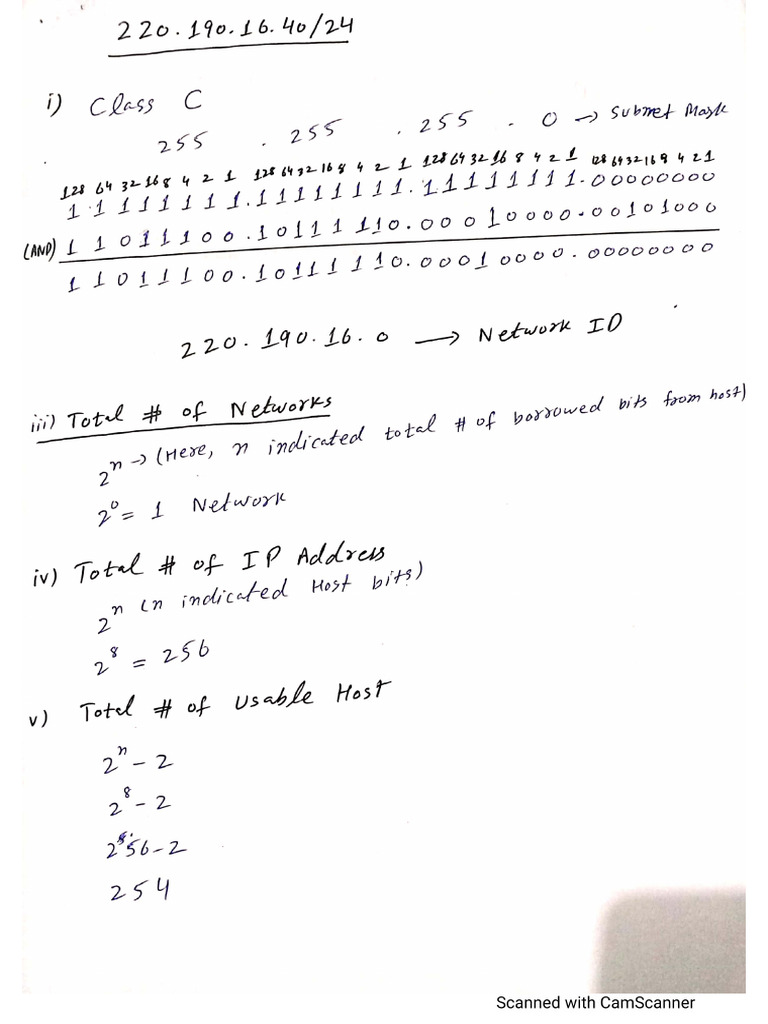 220.190.16.40/24
i) Class C
255 . 255 . 255 . 0 → Subnet Mask
128 64 32 16 8 4 2 1 128 64 32 16 8 4 2 1 128 64 32 16 8 4 2 1 128 64 32 16 8 4 2 1
1 1 1 1 1 1 1 1 . 1 1 1 1 1 1 1 1 . 1 1 1 1 1 1 1 1 . 0 0 0 0 0 0 0 0
(AND) 1 1 0 1 1 1 0 0 . 1 0 1 1 1 1 1 0 . 0 0 0 1 0 0 0 0 . 0 0 1 0 1 0 0 0
1 1 0 1 1 1 0 0 . 1 0 1 1 1 1 1 0 . 0 0 0 1 0 0 0 0 . 0 0 0 0 0 0 0 0
220.190.16.0 → Network ID
iii) Total # of Networks
2^n → (Here, n indicated total # of borrowed bits from host)
2^0 = 1 Network
iv) Total # of IP Address
2^n (n indicated Host bits)
2^8 = 256
v) Total # of Usable Host
2^n - 2
2^8 - 2
256-2
254
Scanned with CamScanner